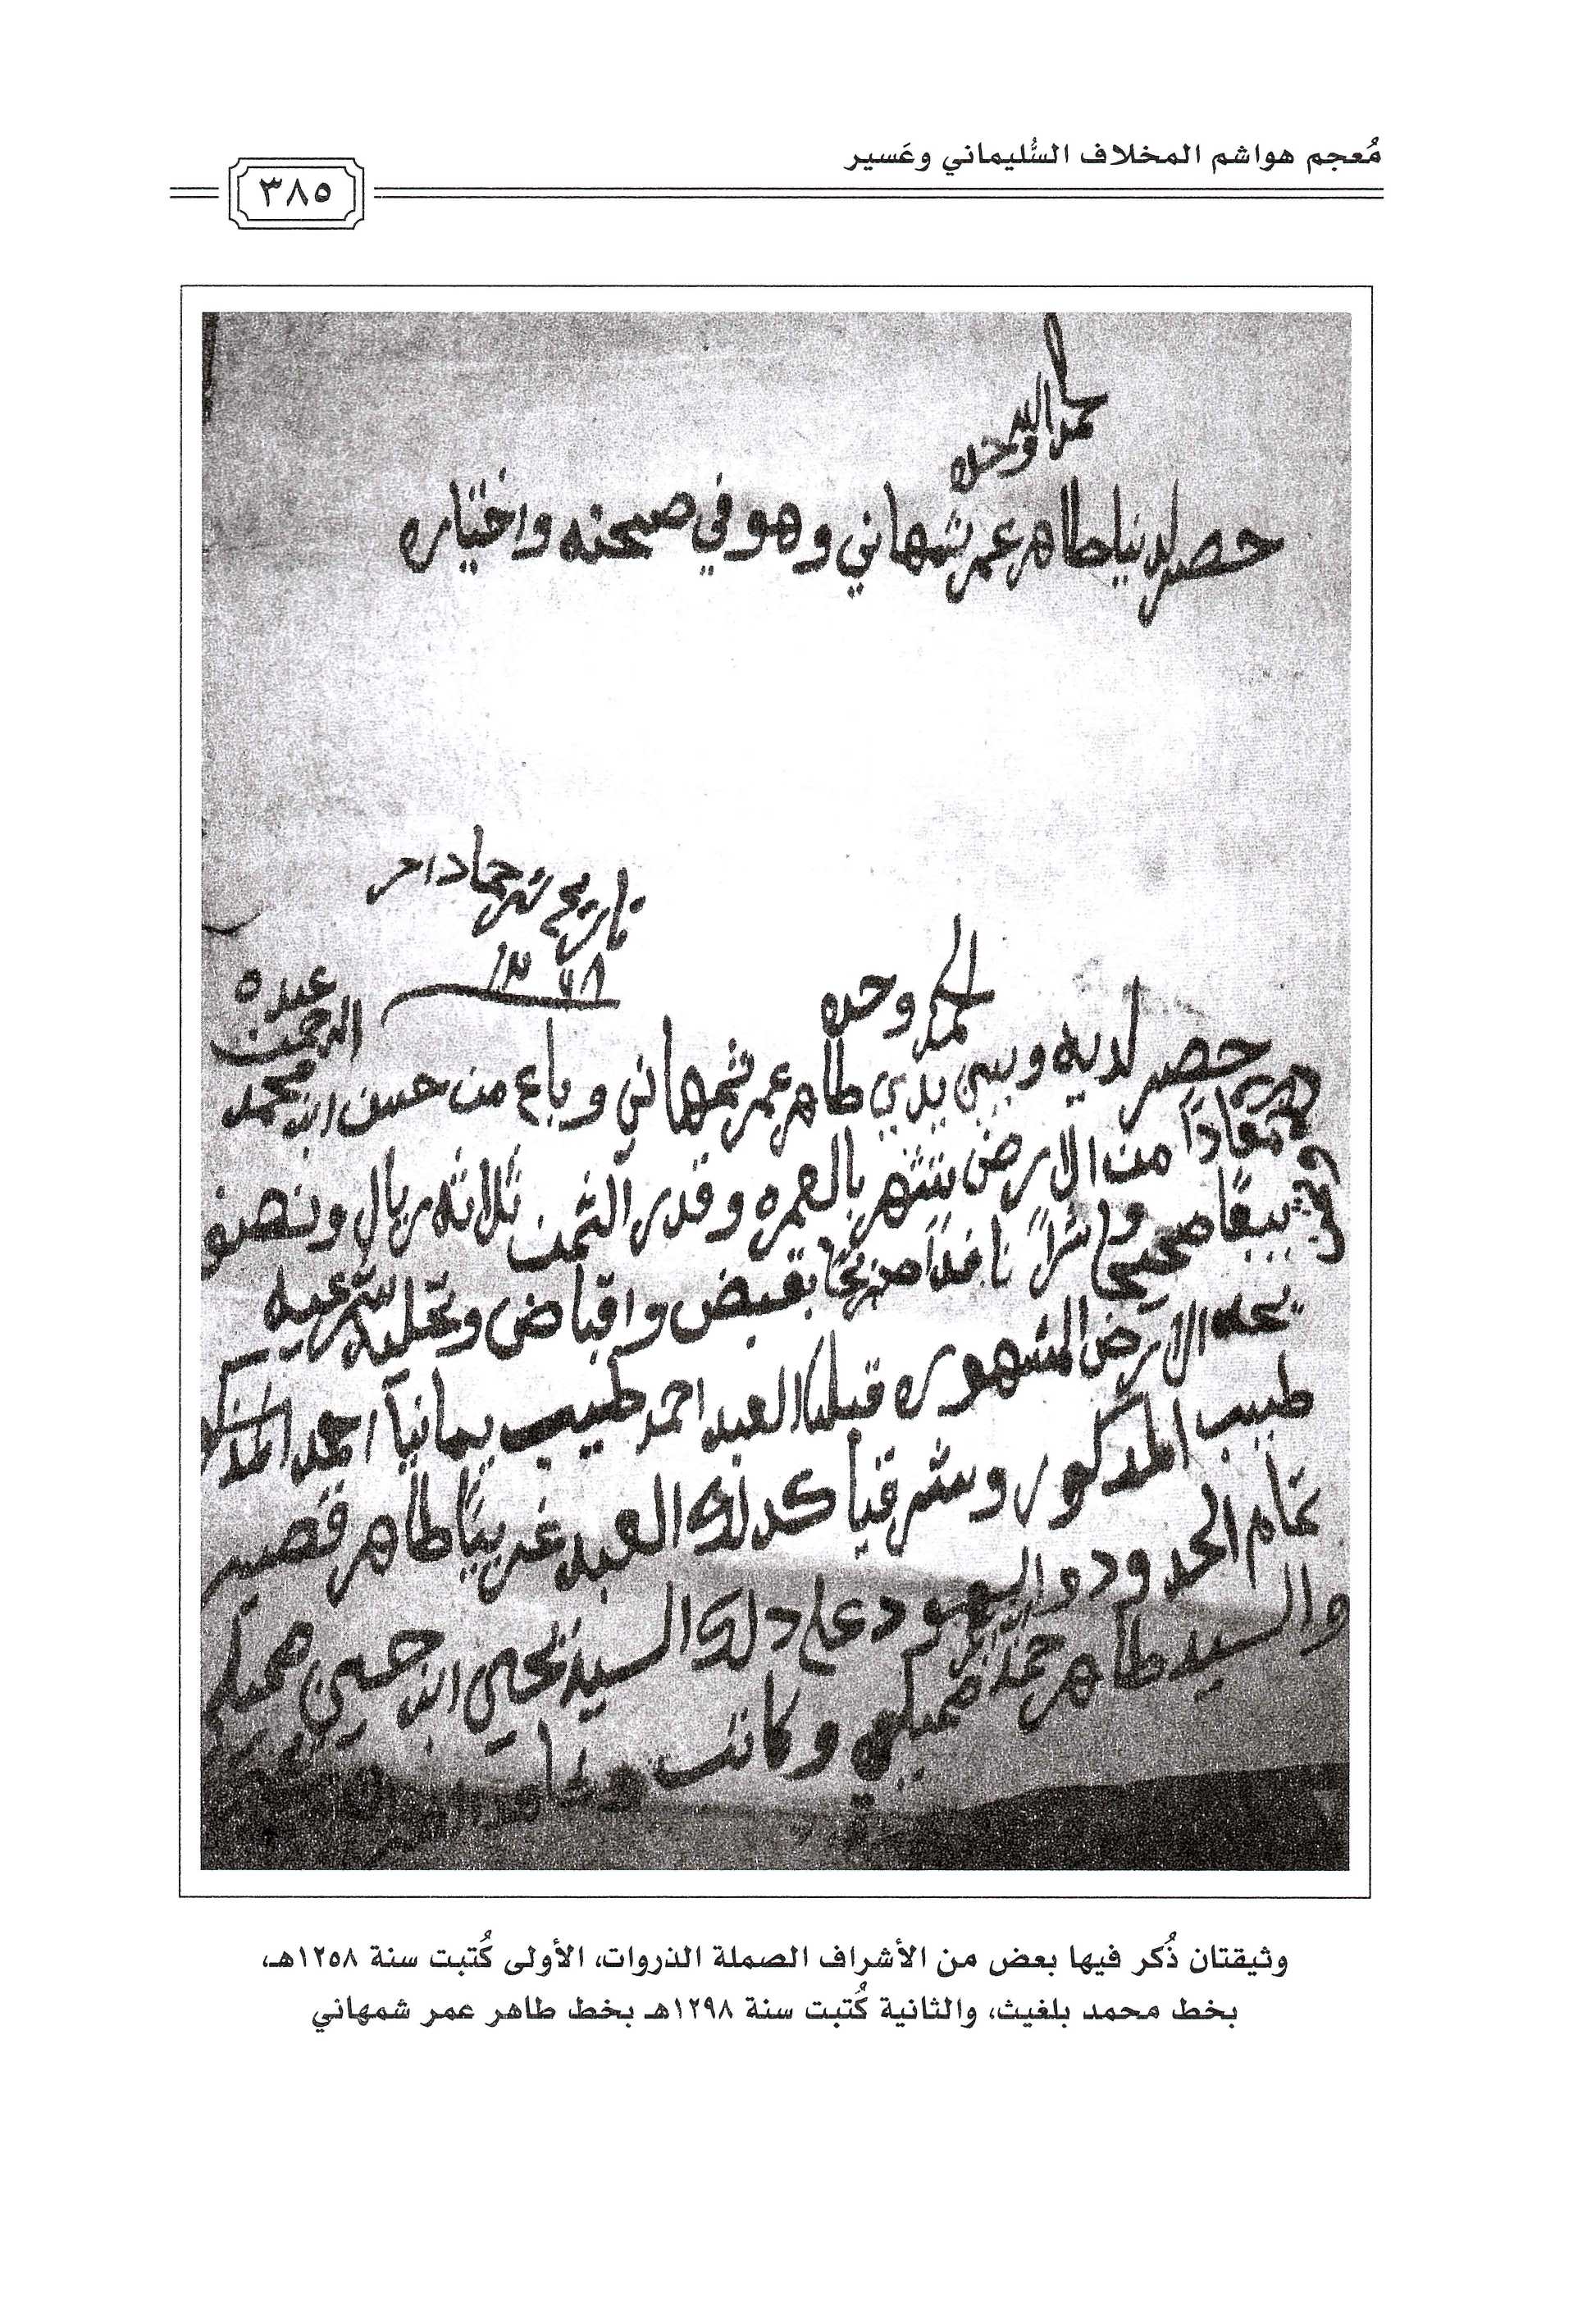 مُعجم هواشم المخلاف السُّليماني وعَسير
٣٨٥
حمد الله وحده
حضر لدينا طاهر عمر شمهاني وهو في صحته واختياره
تاريخ شهر جماد اخر
الحمد لله وحده
عبده
الرحمن
حضر لديه وبين يدي طاهر عمر شمهاني وباع من حسن ابن محمد
معادا من الارض يشتهر بالعمره وقدر الثمن ثلاثه ريال ونصف
بيعا صحيحا وشراً نافذا صريحا بقبض واقباض وتخليه شرعيه
يحده الارض المشهوره قبليا العبد احمد طبيب يمانيا احمد
طبيب المذكور وشرقيا كذلك العبد غربيا طاهر قصير
تمام الحدود والشهود على ذلك السيد يحيى ابن حسين صميلي
والسيد طاهر حمد صميلي وكاتب
وثيقتان ذُكر فيها بعض من الأشراف الصملة الذروات، الأولى كُتبت سنة ١٢٥٨هـ،
بخط محمد بلغيث، والثانية كُتبت سنة ١٢٩٨هـ بخط طاهر عمر شمهاني